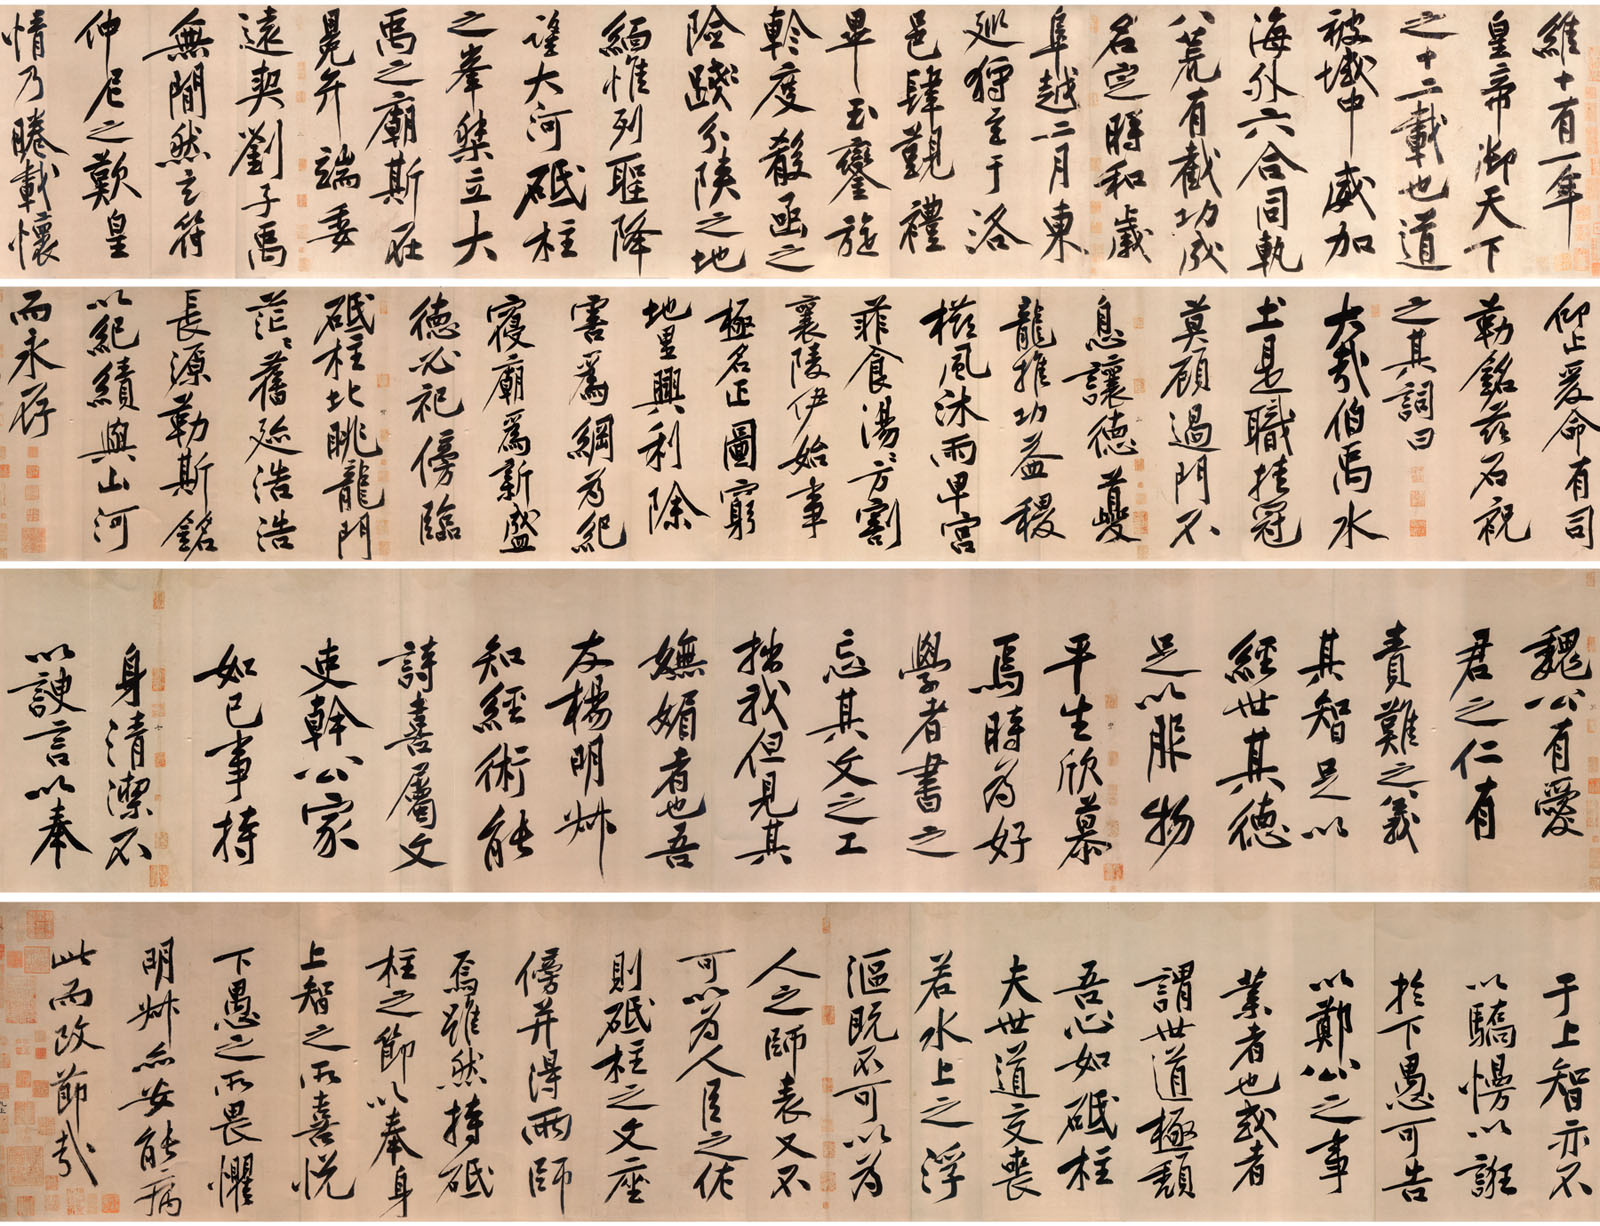 維十有一年
皇帝御天下
之十二載也道
被域中威加
海外六合同軌
八荒有截功成
名定時和歲
阜越二月東
巡狩至于洛
邑肆覲禮
畢玉鑾旋
軫度殽函之
險踐分陝之地
緬惟列聖降
望大河砥柱
之峯桀立大
禹之廟斯在
晃弁端委
遠契劉子禹
無閒然玄符
仲尼之歎皇
情乃睠載懷
仰止爰命有司
勒銘茲石祝
之其詞曰
大哉伯禹水
土是職挂冠
莫顧過門不
息讓德夔
龍推功益稷
櫛風沐雨卑宮
菲食湯湯方割
襄陵伊始事
極名正圖窮
地里興利除
害為綱為紀
寢廟為新盛
德必祀傍臨
砥柱北眺龍門
茫茫舊迹浩浩
長源勒斯銘
以紀績與山河
而永存
魏公有愛
君之仁有
責難之義
其智足以
經世其德
足以服物
平生欣慕
焉時為好
學者書之
忘其文之工
拙我但見其
嫵媚者也吾
友楊明叔
知經術能
詩喜屬文
吏幹公家
如己事持
身清潔不
以諛言以奉
于上智亦不
以驕慢以誑
於下愚可告
以鄭公之事
業者也或者
謂世道極頹
吾心如砥柱
夫世道交喪
若水上之浮
漚既不可以為
人之師表又不
可以為人臣之佐
則砥柱之文座
傍并得兩師
焉雖然持砥
柱之節以奉身
上智之所喜悅
下愚之所畏懼
明叔亦安能病
此而改節哉